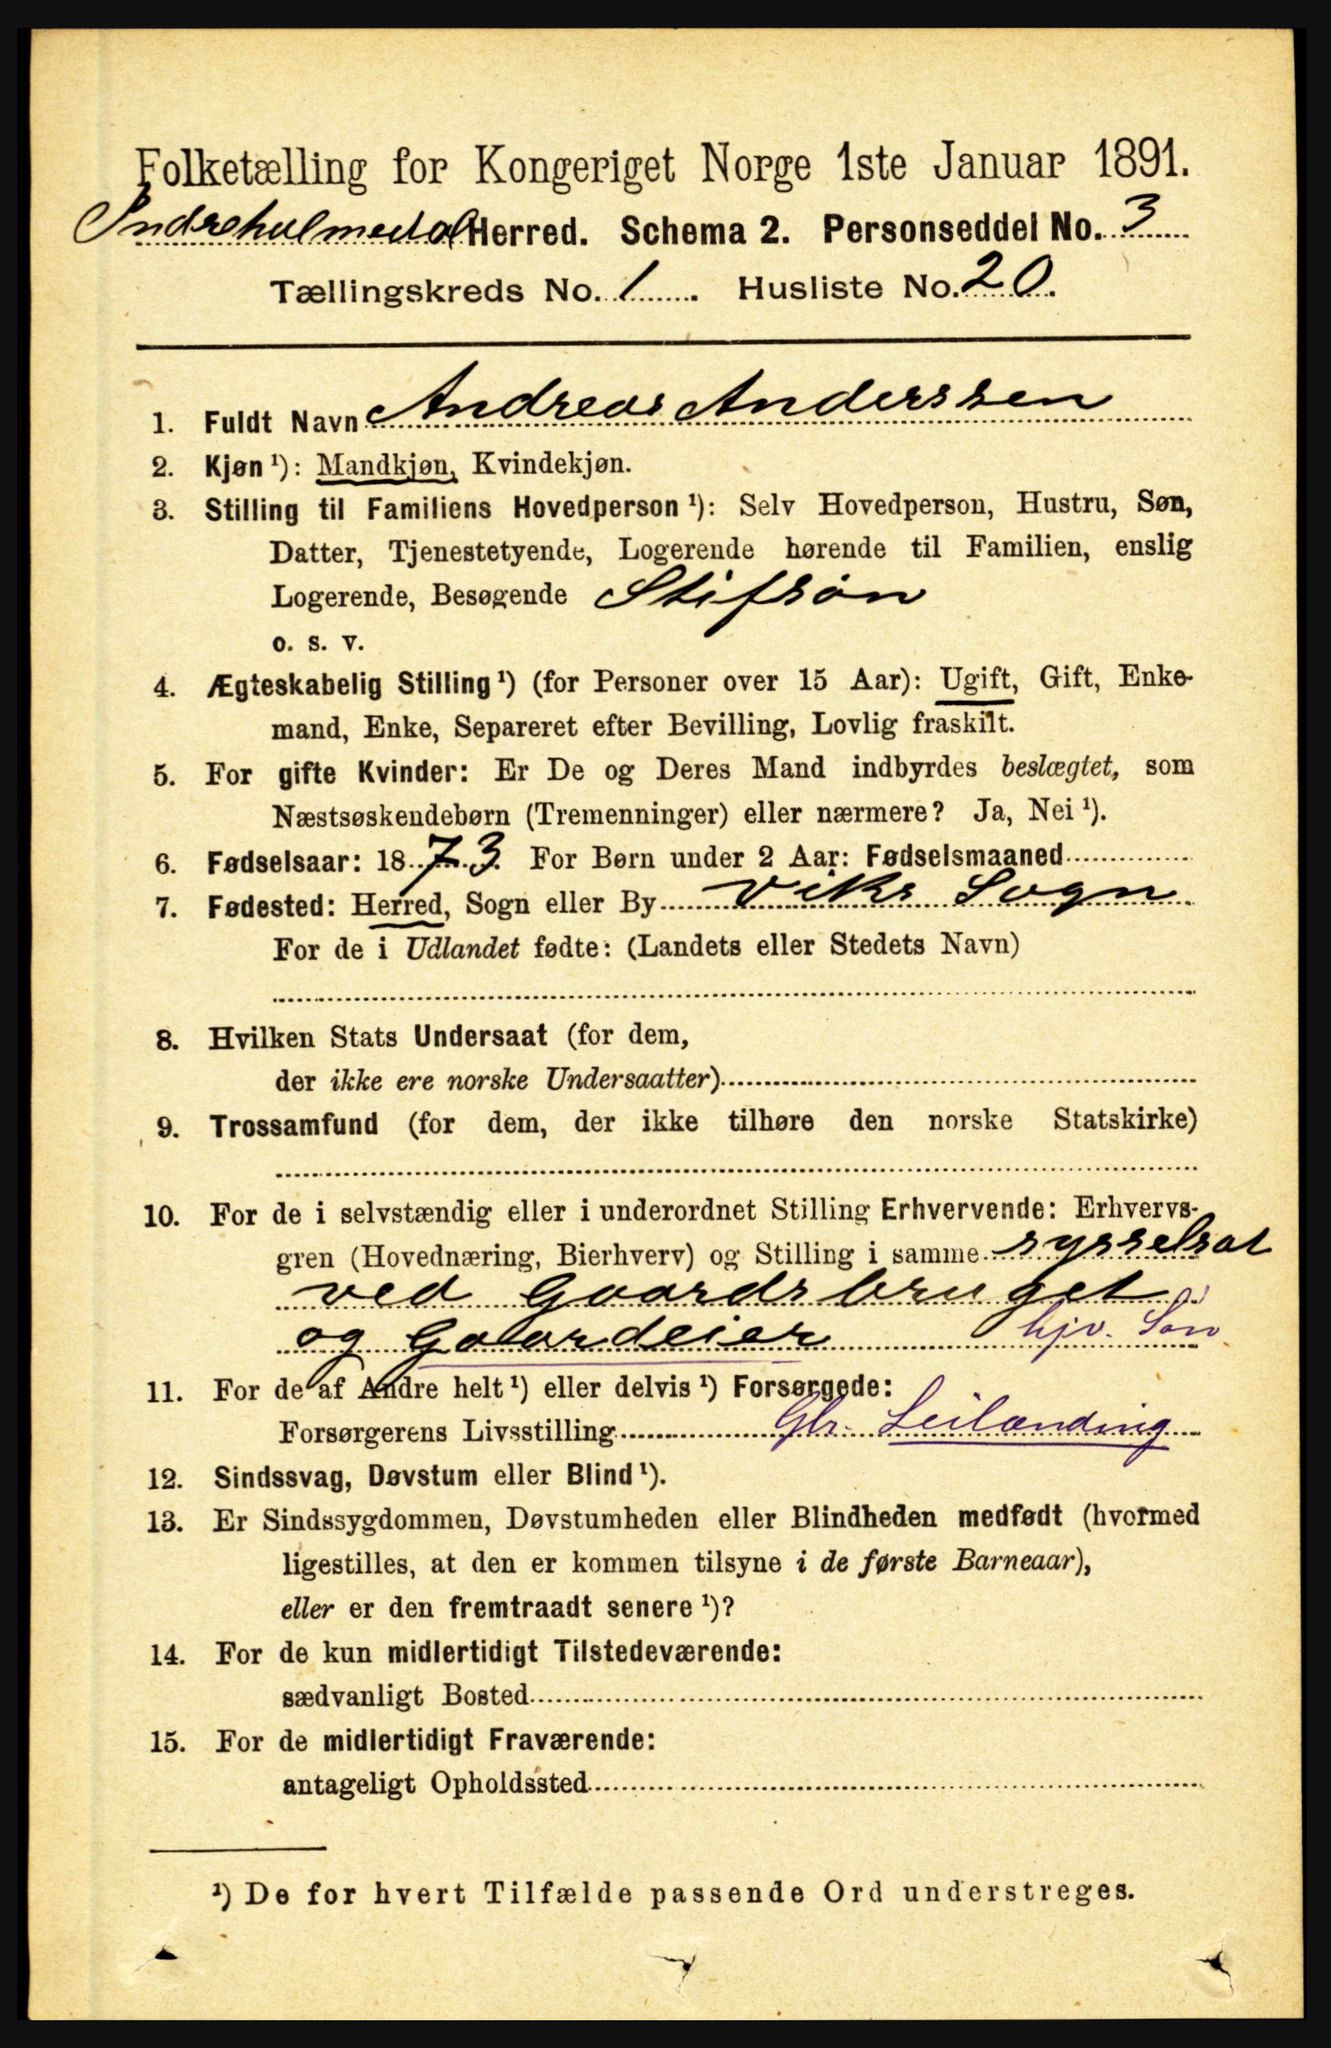 Folketælling for Kongeriget Norge 1ste Januar 1891.
Indreholmedal Herred. Schema 2. Personseddel No. 3
Tællingskreds No. 1. Husliste No. 20.
1. Fuldt Navn Andreas Anderssen
2. Kjøn ¹): Mandkjøn, Kvindekjøn.
3. Stilling til Familiens Hovedperson ¹): Selv Hovedperson, Hustru, Søn,
Datter, Tjenestetyende, Logerende hørende til Familien, enslig
Logerende, Besøgende Stifsøn
o. s. v.
4. Ægteskabelig Stilling ¹) (for Personer over 15 Aar): Ugift, Gift, Enke-
mand, Enke, Separeret efter Bevilling, Lovlig fraskilt.
5. For gifte Kvinder: Er De og Deres Mand indbyrdes beslægtet, som
Næstsøskendebørn (Tremenninger) eller nærmere? Ja, Nei ¹).
6. Fødselsaar: 1873. For Børn under 2 Aar: Fødselsmaaned
7. Fødested: Herred, Sogn eller By Viks Sogn
For de i Udlandet fødte: (Landets eller Stedets Navn)
8. Hvilken Stats Undersaat (for dem,
der ikke ere norske Undersaatter)
9. Trossamfund (for dem, der ikke tilhøre den norske Statskirke)
10. For de i selvstændig eller i underordnet Stilling Erhvervende: Erhvervs-
gren (Hovednæring, Bierhverv) og Stilling i samme sysselsat
ved Gaardsbruget
og Gaardeier hjv. Søn
11. For de af Andre helt ¹) eller delvis ¹) Forsørgede:
Forsørgerens Livsstilling Gbr. Leilænding
12. Sindssvag, Døvstum eller Blind ¹).
13. Er Sindssygdommen, Døvstumheden eller Blindheden medfødt (hvormed
ligestilles, at den er kommen tilsyne i de første Barneaar),
eller er den fremtraadt senere ¹)?
14. For de kun midlertidigt Tilstedeværende:
sædvanligt Bosted
15. For de midlertidigt Fraværende:
antageligt Opholdssted
¹) De for hvert Tilfælde passende Ord understreges.